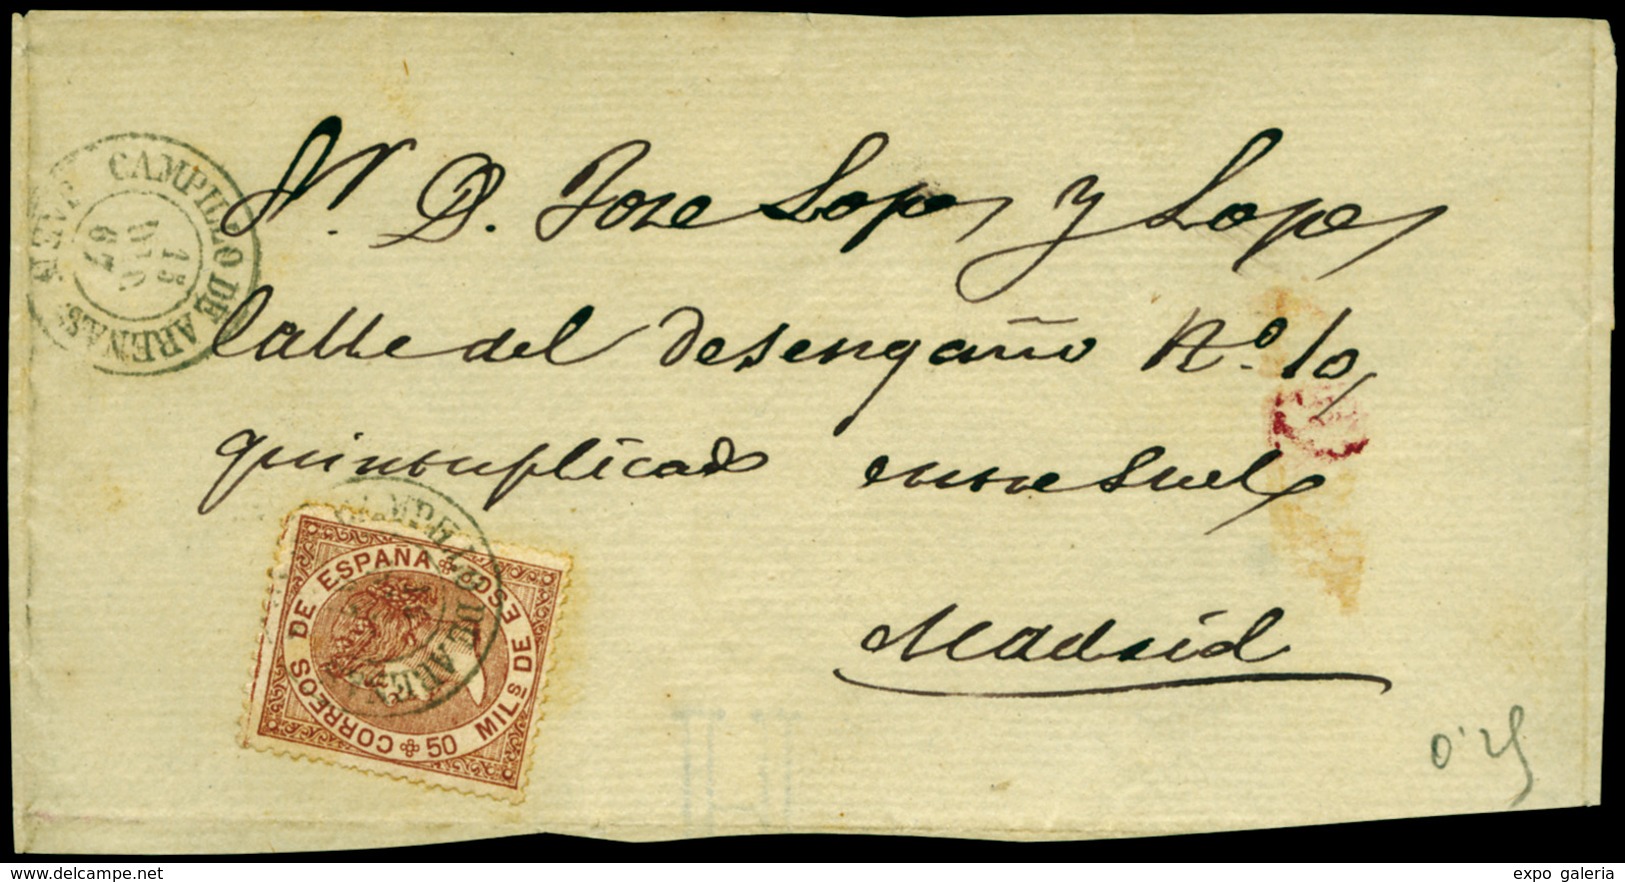 CAMPILLO DE ARENAS.
15
DIC
67
Sr. D. Jose Lopez y Lopez
Calle del Desengaño No. 10
quintuplicado
Madrid
CORREOS DE ESPAÑA
50 MILs DE ESCO
0'25
expo galeria